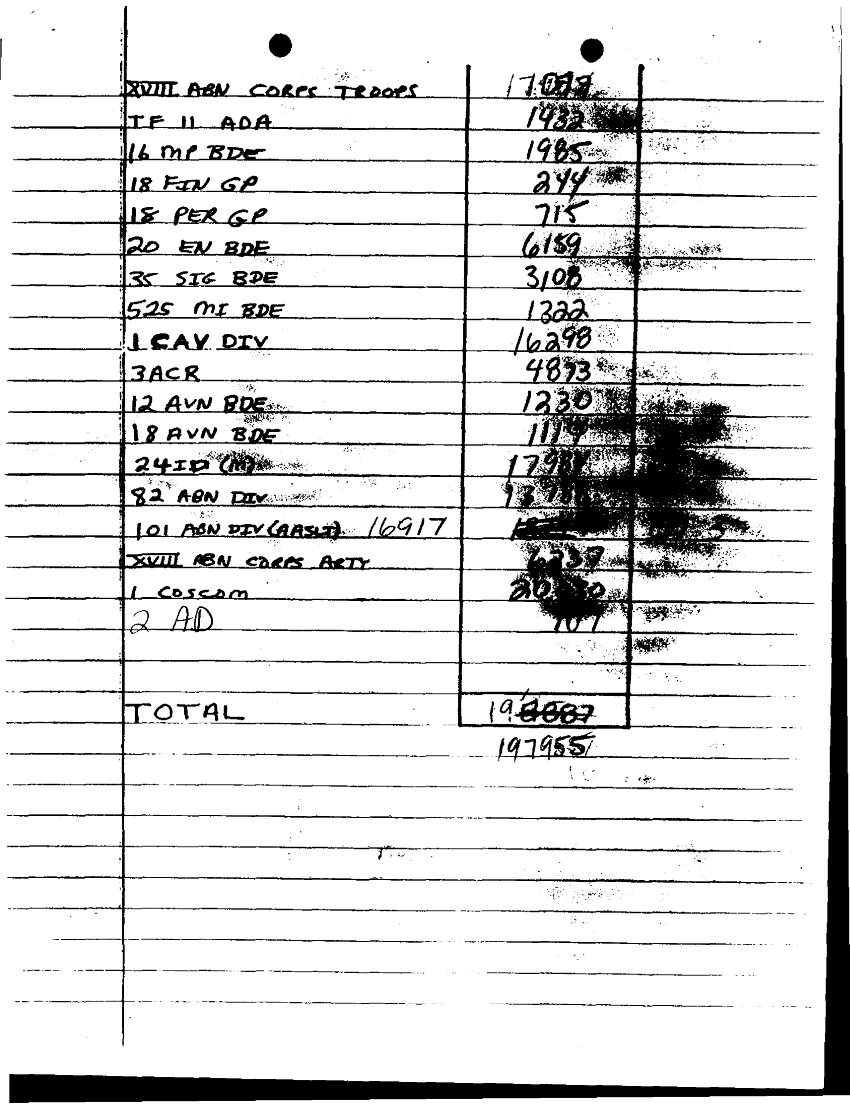 XVIII ABN CORPS TROOPS
TF 11 ADA 1432
16 MP BDE 1985
18 FIN GP 244
18 PER GP 715
20 EN BDE 6159
35 SIG BDE 3108
525 MI BDE 1322
1 CAV DIV 16298
3ACR 4873
12 AVN BDE 1230
18 AVN BDE
24ID (M)
82 ABN DIV
101 ABN DIV (AASLT) 16917
XVIII ABN CORPS ARTY
1 COSCOM
2 AD
TOTAL
197955